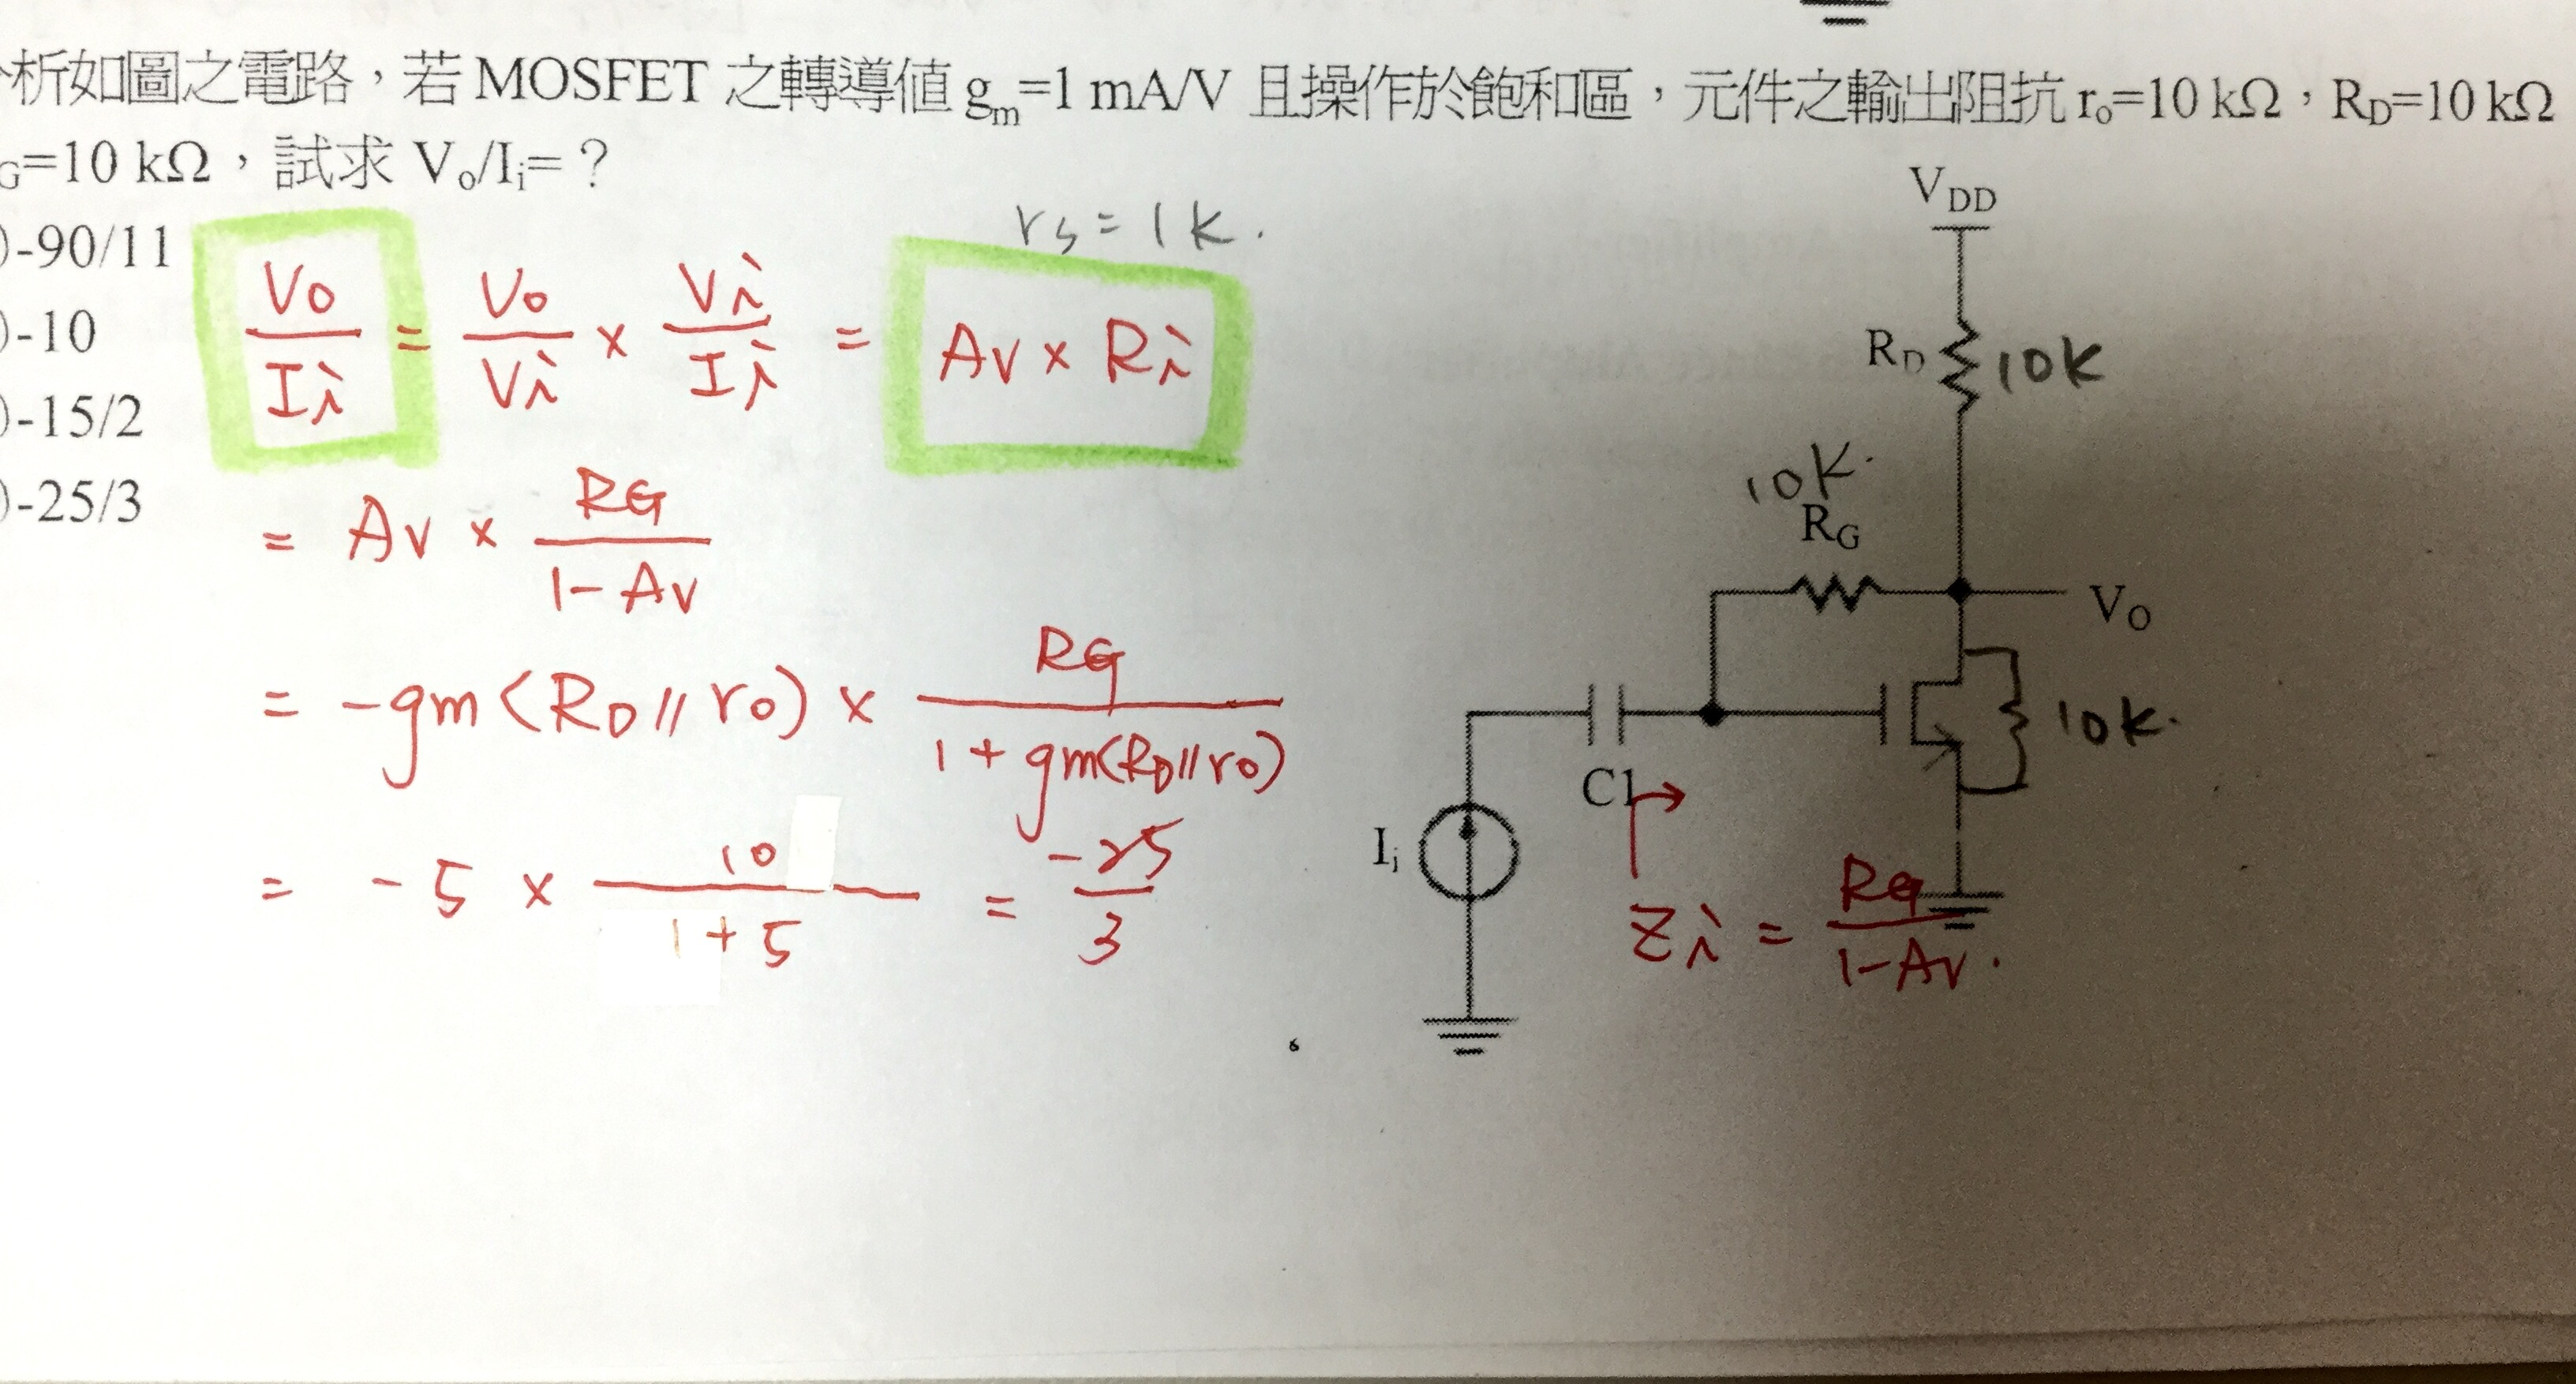 析如圖之電路，若 MOSFET 之轉導值 gm=1 mA/V 且操作於飽和區，元件之輸出阻抗 ro=10 kΩ，RD=10 kΩ
G=10 kΩ，試求 Vo/Ii=？
)-90/11
)-10
)-15/2
)-25/3
rs = 1k.
Vo/Ii = Vo/Vi × Vi/Ii = Av × Ri
= Av × RG/(1-Av)
= -gm(RD//ro) × RG/(1+gm(RD//ro))
= -5 × 10/(1+5) = -25/3
VDD
RD 10K
10K.
RG
VO
10K.
C1
Ii
Zi = RG/(1-Av).